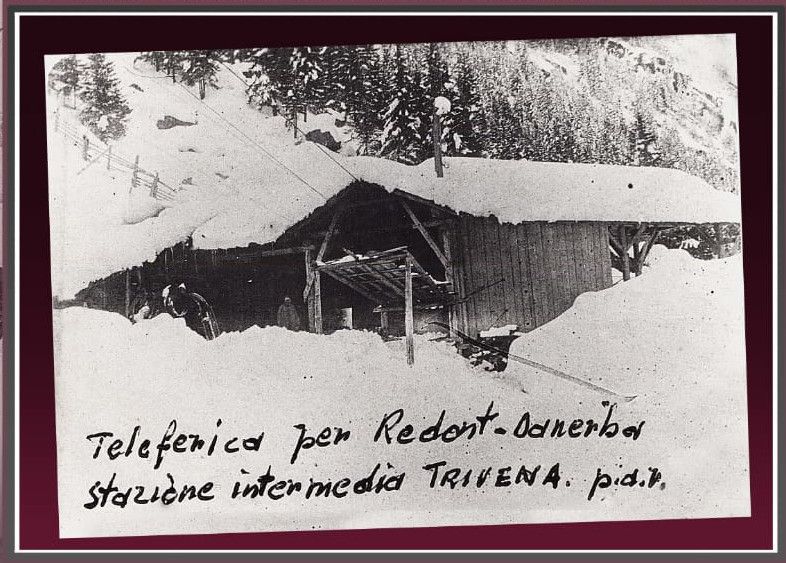 Teleferica per Redort-Danerba
stazione intermedia TRIVENA. p.d.r.